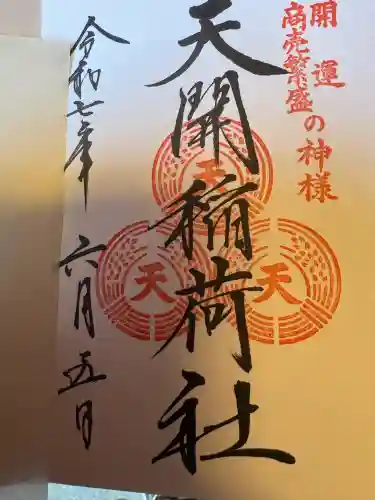 開運
商売繁盛の神様
天開稲荷社
天
天
天
令和七年
六月五日